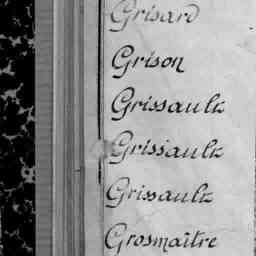 Grisard
Grison
Grissault
Grissault
Grissault
Grosmaître